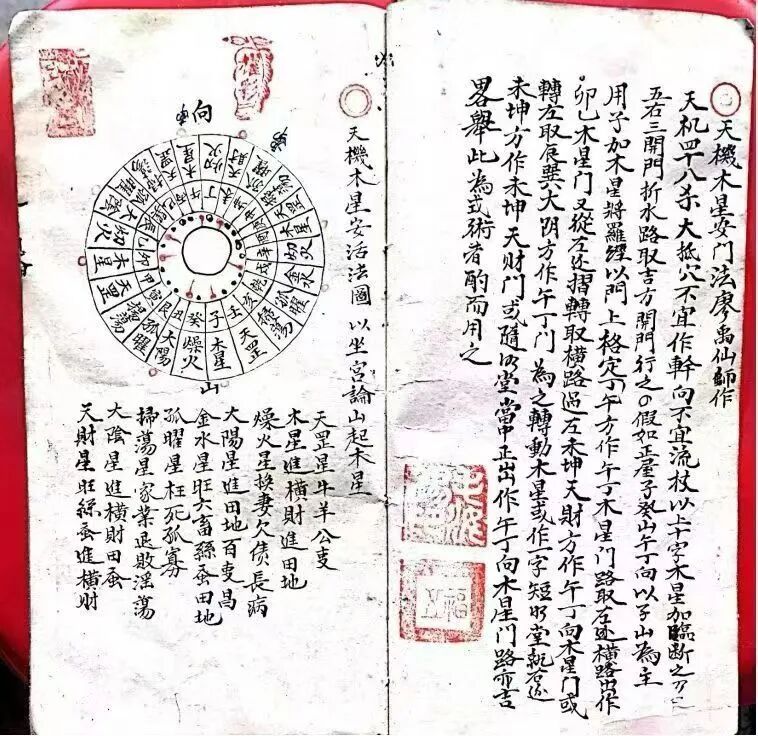 天機木星安門法廖禹仙師作
天机四十八杀大抵穴不宜作幹向不宜流杖以上十字木星加臨断之
五右三開門折水路取吉方開門行之假如正屋子癸山午丁向以子山為主
用子加木星將羅經以門上格定丁午方作午丁木星門路取左边横路出作
卯巳木星门又從左边摺轉取横路過左未坤天財方作午丁向木星门或
轉左取辰巽大阴方作午丁門為之轉動木星或作一字短明堂就右边
未坤方作未坤天財門或隨明堂當中正出作午丁向木星门路亦吉
畧舉此為式術者酌而用之
天機木星安活法圖以坐宫論山起木星
向
山
子
癸
丑
艮
寅
甲
卯
乙
壬
亥
木星
燥火
大陽
孤曜
掃荡
天罡
木星
天罡
掃荡
孤曜
金水
天罡星牛羊公隻
木星進横財進田地
燥火星换妻欠债長病
大陽星進田地百隻昌
金水星旺六畜絲蚕田地
孤曜星枉死孤寡
掃荡星家業退敗淫荡
大陰星進横財田蚕
天財星旺絲蚕進横財